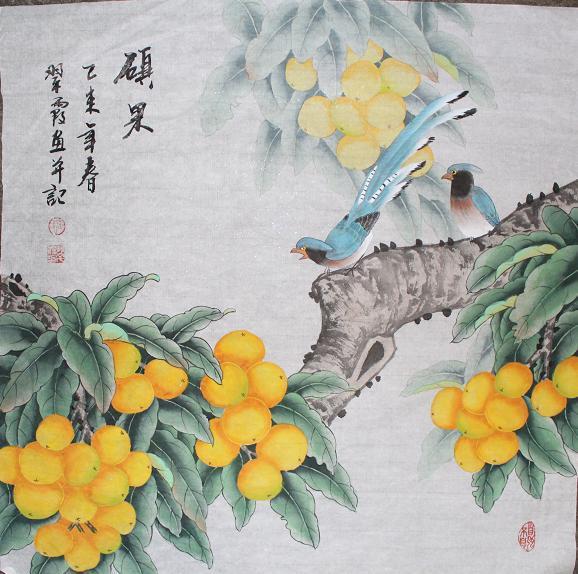 硕果
乙未年春
翠霞画并记